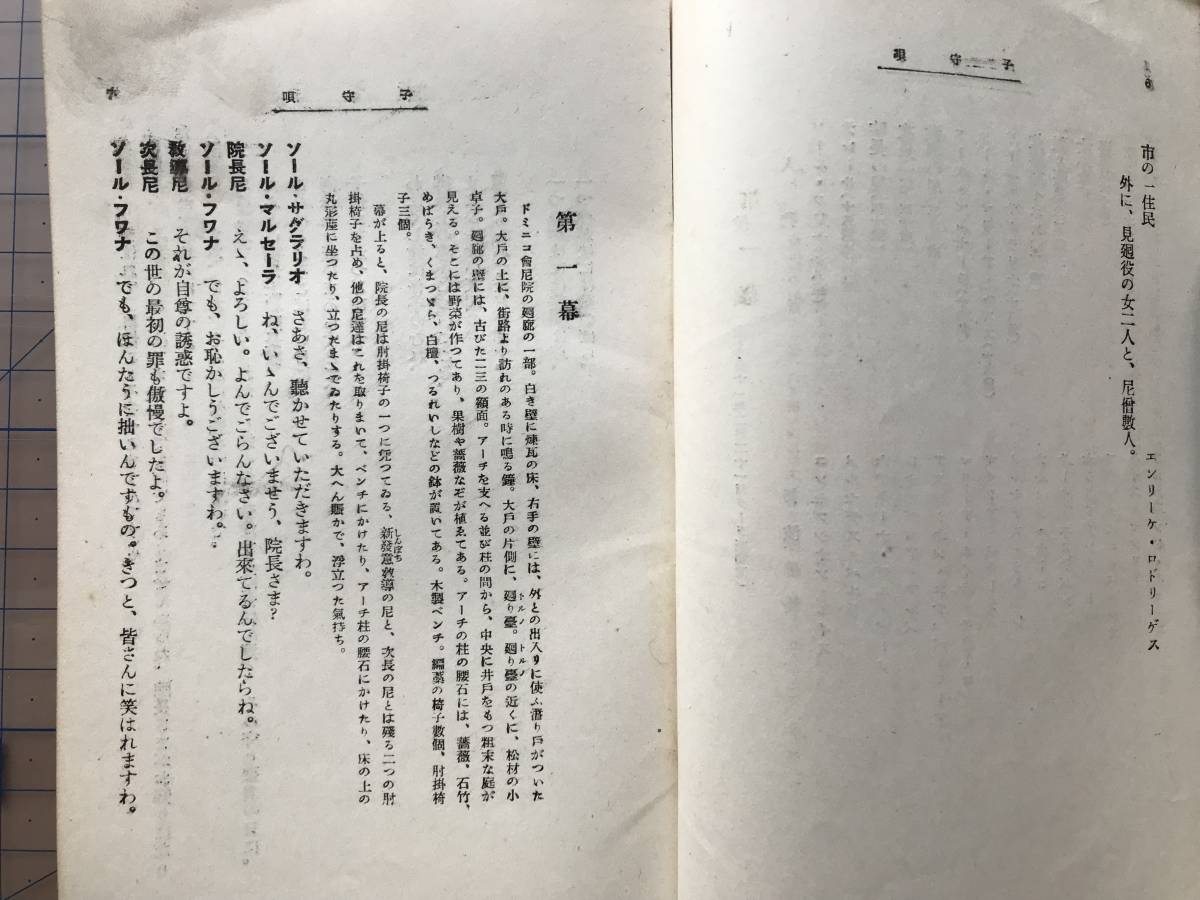 子守唄
6
市の一住民
エンリーケ・ロドリーゲス
外に、見廻役の女二人と、尼僧數人。
子守唄
第一幕
ドミニコ會尼院の廻廊の一部。白き壁に煉瓦の床、右手の壁には、外との出入りに使ふ潜り戸がついた
大戸。大戸の上に、街路より訪れのある時に鳴る鐘。大戸の片側に、廻り臺。廻り臺の近くに、松材の小
トルノ トルノ
卓子。廻廊の壁には、古びた二三の額面。アーチを支へる並び柱の間から、中央に井戸をもつ粗末な庭が
見える。そこには野菜が作つてあり、果樹や薔薇なぞが植ゑてある。アーチの柱の腰石には、薔薇、石竹、
めばうき、くまつゞら、白檀、つるれいしなどの鉢が置いてある。木製ベンチ。編藁の椅子數個、肘掛椅
子三個。
幕が上ると、院長の尼は肘掛椅子の一つに凭つてゐる、新發意敎導の尼と、次長の尼とは殘る二つの肘
しんぼち
掛椅子を占め、他の尼達はこれを取りまいて、ベンチにかけたり、アーチ柱の腰石にかけたり、床の上の
丸形座に坐つたり、立つたまゝでゐたりする。大へん賑かで、浮立つた氣持ち。
ソール・サグラリオ さあさ、聽かせていただきますわ。
ソール・マルセーラ ね、いゝんでございませう、院長さま?
院長尼 えゝ、よろしい。よんでごらんなさい。出來てるんでしたらね。
ソール・フワナ でも、お恥かしうございますわ。
敎導尼 それが自尊の誘惑ですよ。
次長尼 この世の最初の罪も傲慢でしたよ。
ソール・フワナ でも、ほんたうに拙いんですもの。きつと、皆さんに笑はれますわ。